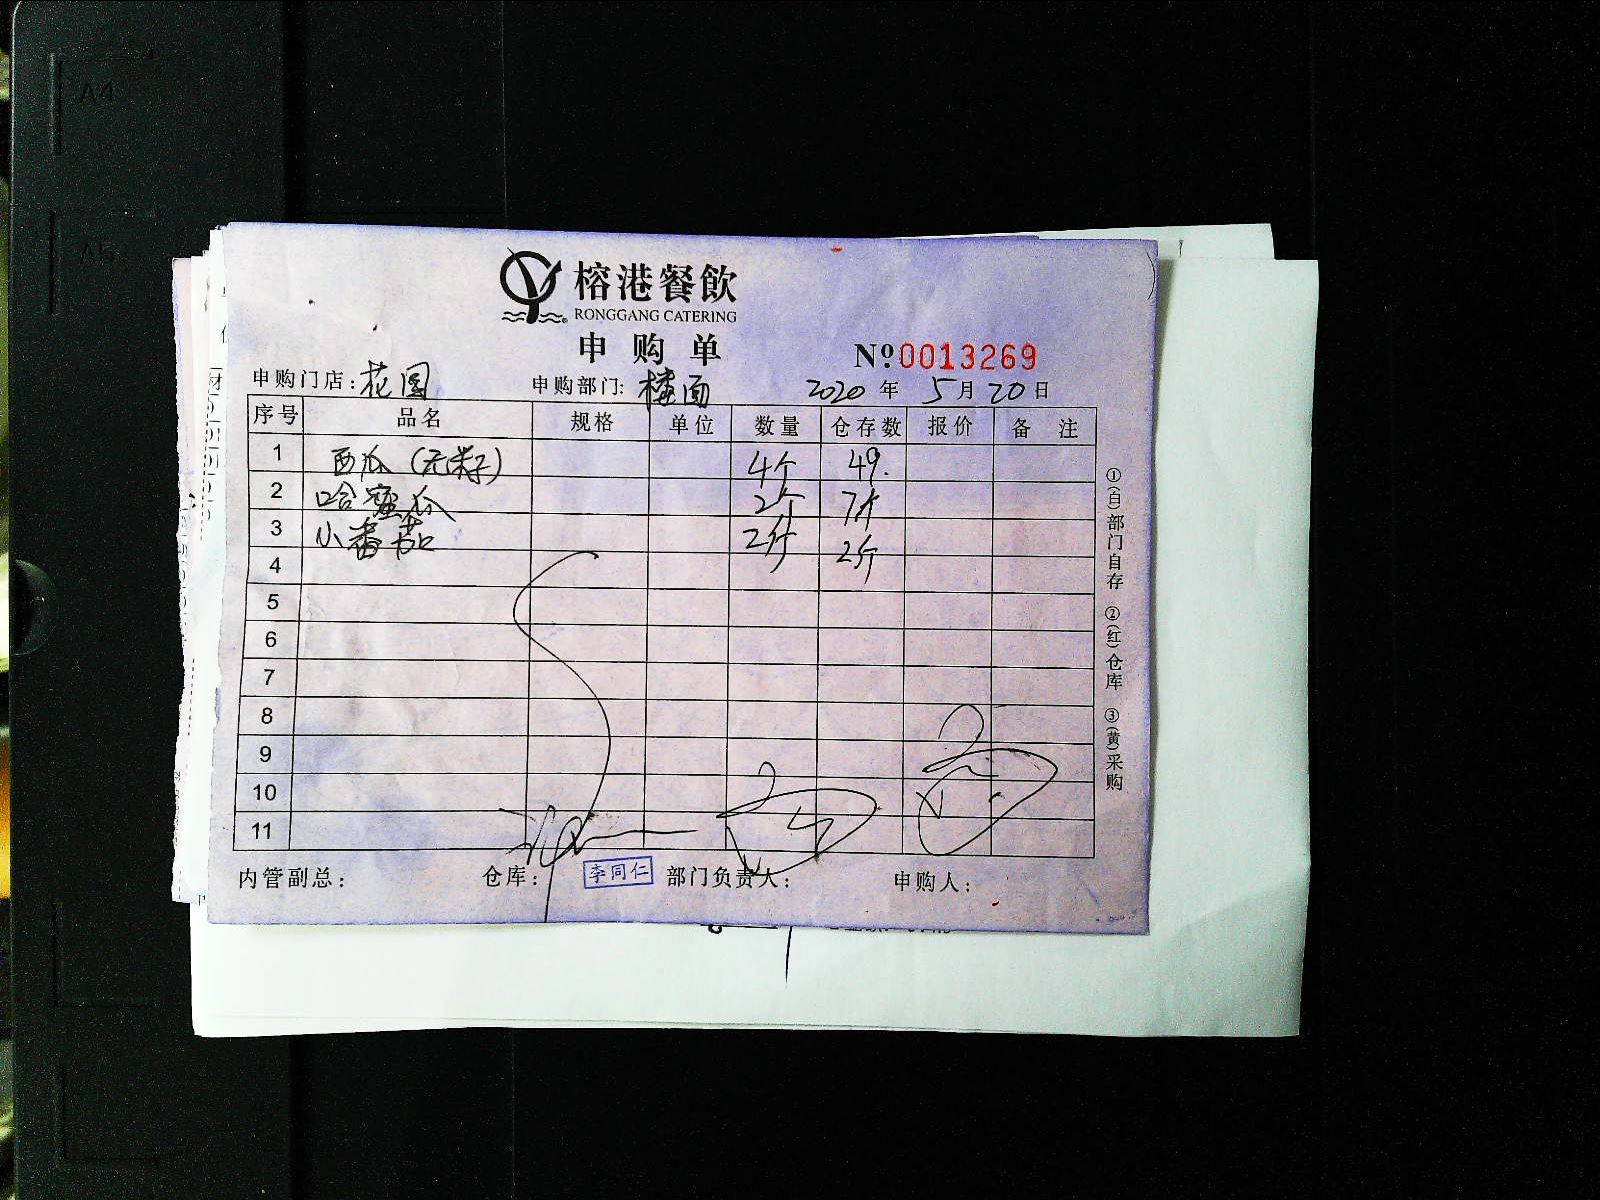 A4
A5
榕港餐飲
RONGGANG CATERING
申购单
№0013269
申购门店:花园 申购部门:楼面 2020年5月20日
序号 品名 规格 单位 数量 仓存数 报价 备注
1 西瓜(无籽) 4个 49.
2 哈蜜瓜 2个 7斤
3 小番茄 2斤 2斤
4
5
6
7
8
9
10
11
内管副总: 仓库: 李同仁 部门负责人: 申购人:
①(白)部门自存 ②(红)仓库 ③(黄)采购